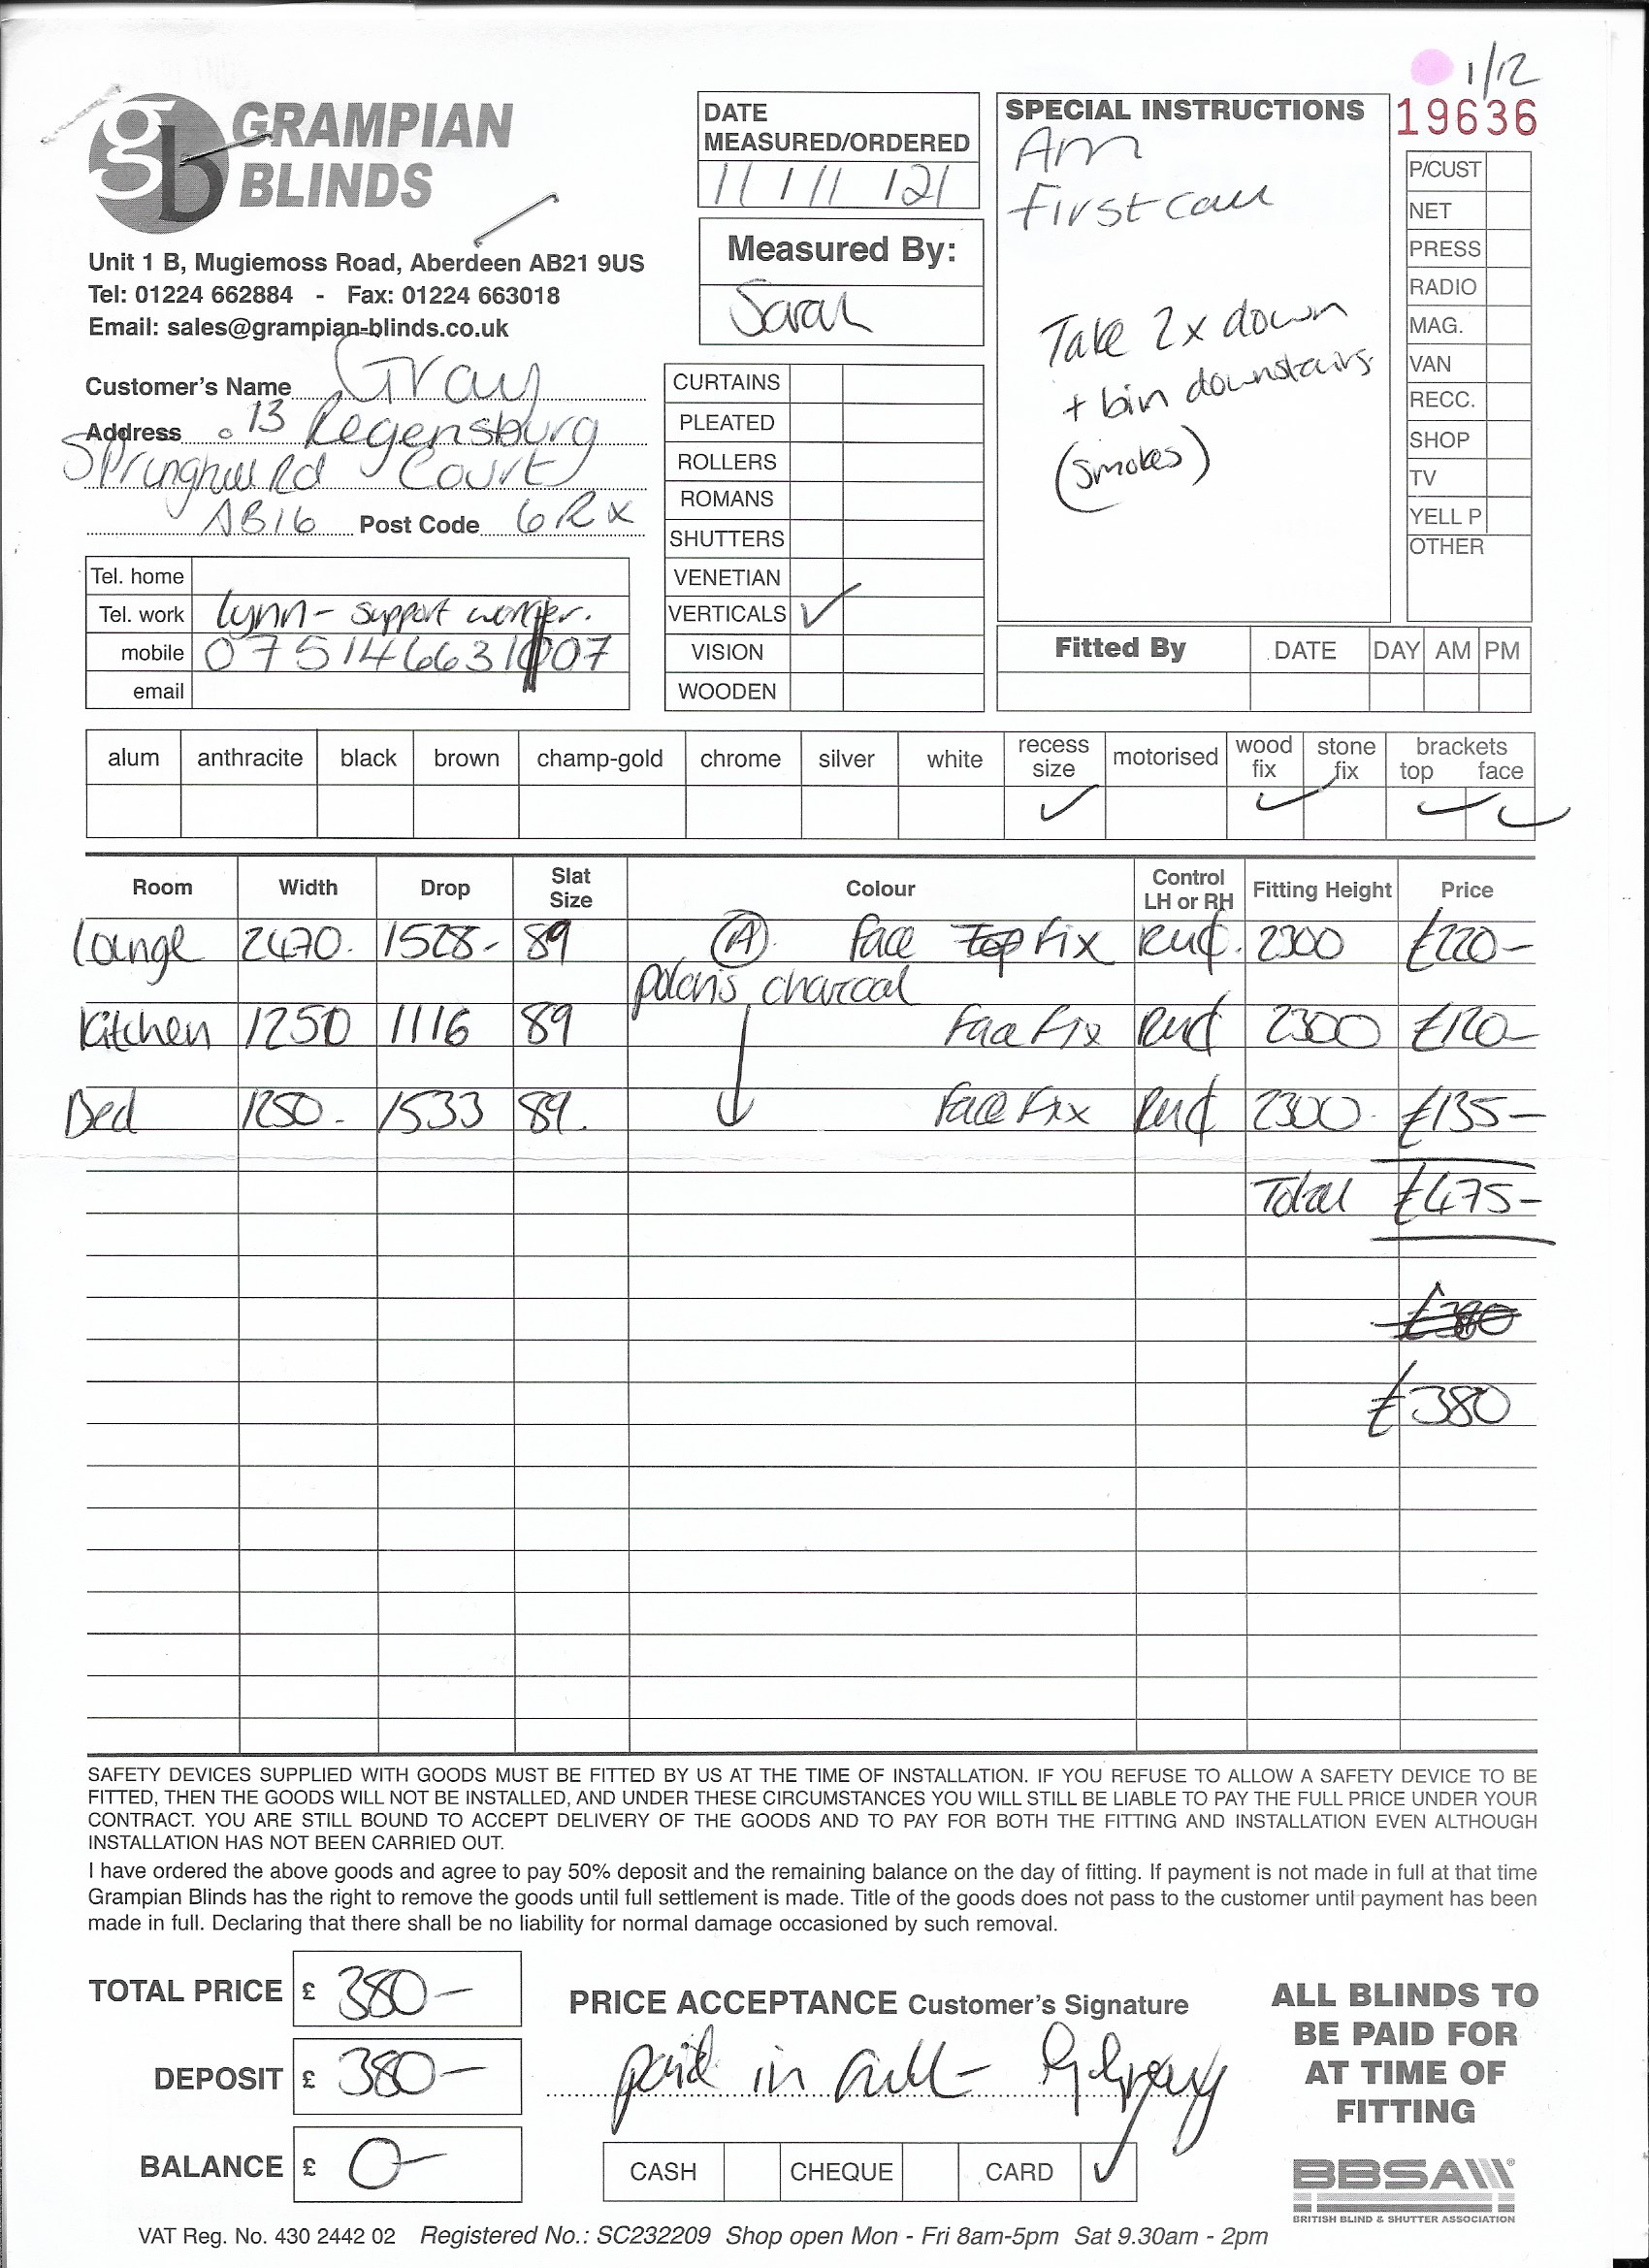 1/12
19636
gb GRAMPIAN
BLINDS
Unit 1 B, Mugiemoss Road, Aberdeen AB21 9US
Tel: 01224 662884 - Fax: 01224 663018
Email: sales@grampian-blinds.co.uk
Customer's Name Gray
Address 13 Regensburg
Springhill Rd Court
AB16 Post Code 6RX
Tel. home
Tel. work Lynn - support worker.
mobile 07514663107
email
DATE
MEASURED/ORDERED
11/11/21
Measured By:
Sarah
CURTAINS
PLEATED
ROLLERS
ROMANS
SHUTTERS
VENETIAN
VERTICALS ✓
VISION
WOODEN
SPECIAL INSTRUCTIONS
Am
First call
Take 2x down
+ bin downstairs
(smokes)
P/CUST
NET
PRESS
RADIO
MAG.
VAN
RECC.
SHOP
TV
YELL P
OTHER
Fitted By DATE DAY AM PM
alum anthracite black brown champ-gold chrome silver white recess size motorised wood fix stone fix brackets top face
✓ ✓ ✓ ✓
Room Width Drop Slat Size Colour Control LH or RH Fitting Height Price
Lounge 2470. 1528- 89 (A) Face Top Fix 2300 £220-
polaris charcoal
Kitchen 1250 1116 89 Face Fix 2300 £120-
Bed 1250- 1533 89. Face Fix 2300 £135-
Total £475-
£380
SAFETY DEVICES SUPPLIED WITH GOODS MUST BE FITTED BY US AT THE TIME OF INSTALLATION. IF YOU REFUSE TO ALLOW A SAFETY DEVICE TO BE
FITTED, THEN THE GOODS WILL NOT BE INSTALLED, AND UNDER THESE CIRCUMSTANCES YOU WILL STILL BE LIABLE TO PAY THE FULL PRICE UNDER YOUR
CONTRACT. YOU ARE STILL BOUND TO ACCEPT DELIVERY OF THE GOODS AND TO PAY FOR BOTH THE FITTING AND INSTALLATION EVEN ALTHOUGH
INSTALLATION HAS NOT BEEN CARRIED OUT.
I have ordered the above goods and agree to pay 50% deposit and the remaining balance on the day of fitting. If payment is not made in full at that time
Grampian Blinds has the right to remove the goods until full settlement is made. Title of the goods does not pass to the customer until payment has been
made in full. Declaring that there shall be no liability for normal damage occasioned by such removal.
TOTAL PRICE £ 380-
DEPOSIT £ 380-
BALANCE £ 0-
PRICE ACCEPTANCE Customer's Signature
paid in full -
CASH CHEQUE CARD ✓
ALL BLINDS TO
BE PAID FOR
AT TIME OF
FITTING
BBSA
BRITISH BLIND & SHUTTER ASSOCIATION
VAT Reg. No. 430 2442 02 Registered No.: SC232209 Shop open Mon - Fri 8am-5pm Sat 9.30am - 2pm